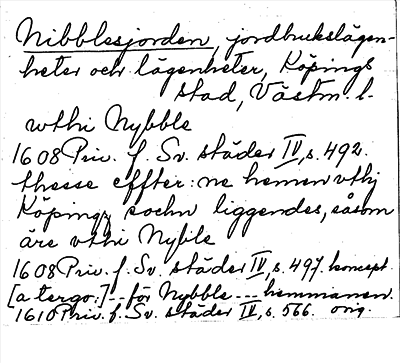 Nibblesjorden, jordbrukslägen-
heter och lägenheter, Köpings
stad, Västm. l.
wthi Nybble
1608 Priv. f. Sv. städer IV, s. 492.
thesse effter:ne hemen vthj
Köpings sochn liggendes, såsom
äre vthi Nyble
1608 Priv. f. Sv. städer IV, s. 497. koncept.
[a tergo:] -- för Nybble --- hemmanen.
1610 Priv. f. Sv. städer IV, s. 566. orig.